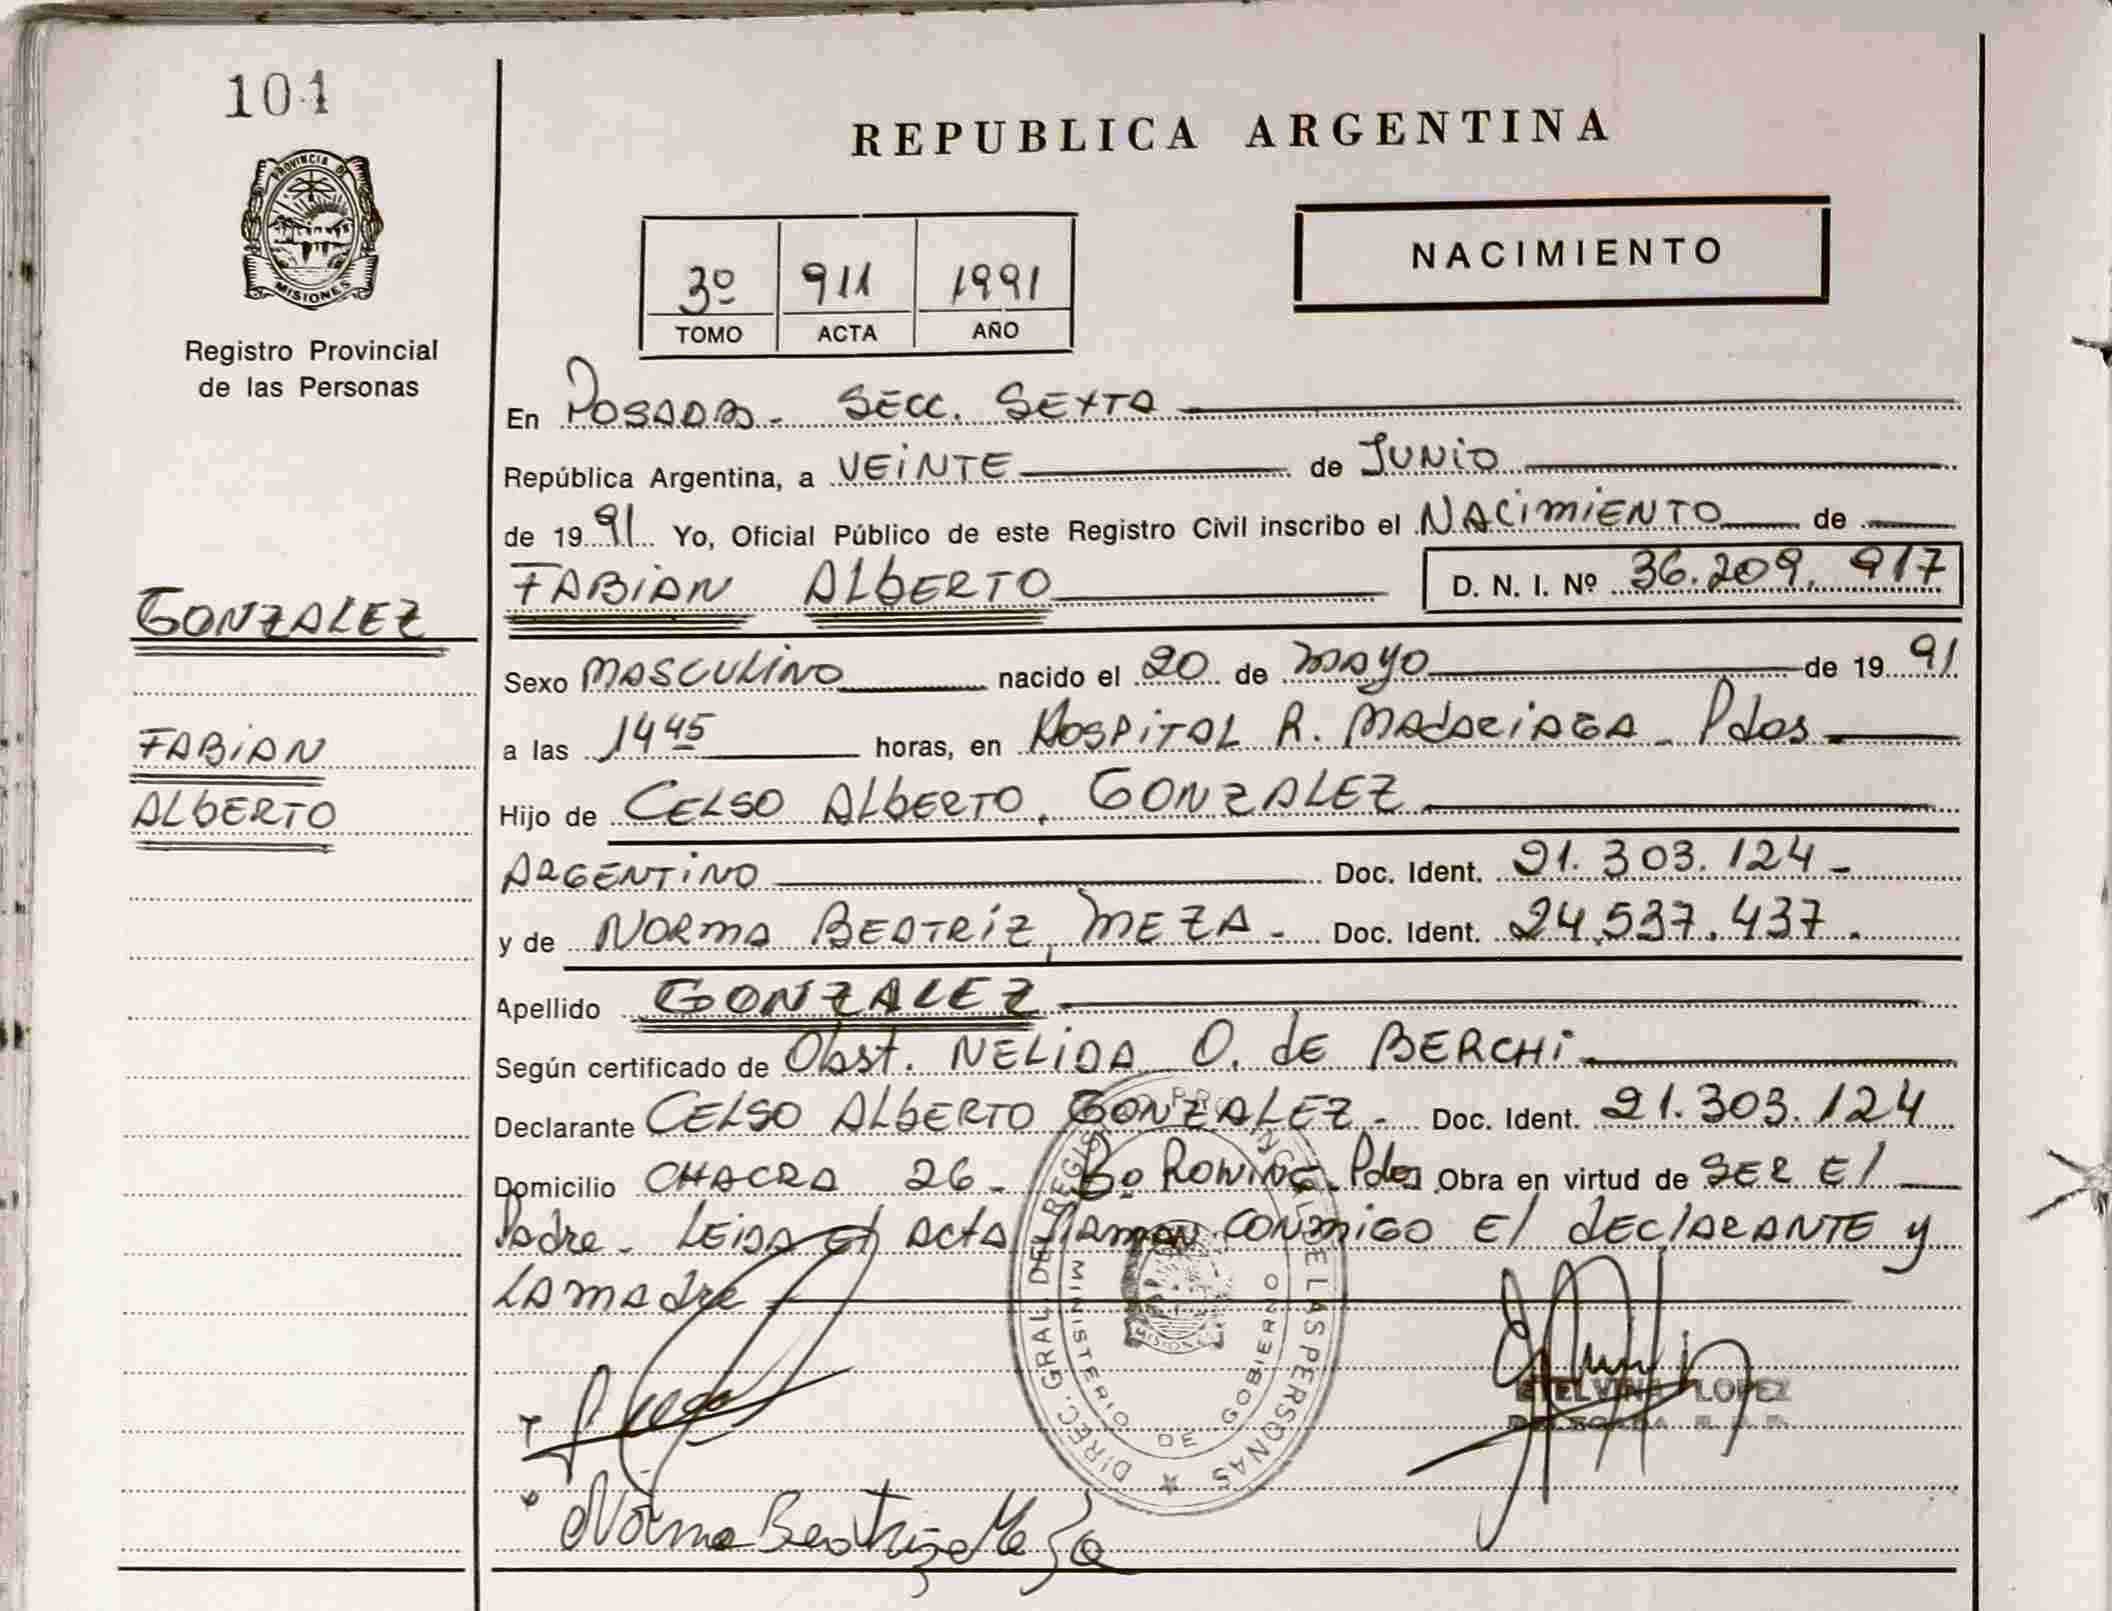 101
PROVINCIA DE
MISIONES
Registro Provincial
de las Personas
GONZALEZ
FABIAN
ALBERTO
REPUBLICA ARGENTINA
3º 911 1991
TOMO ACTA AÑO
NACIMIENTO
En POSADAS - SECC. SEXTA
República Argentina, a VEINTE de JUNIO
de 1991 Yo, Oficial Público de este Registro Civil inscribo el NACIMIENTO de
FABIAN ALBERTO D. N. I. Nº 36.209.917
Sexo MASCULINO nacido el 20 de MAYO de 1991
a las 14 45 horas, en HOSPITAL R. MADARIAGA - Pdas
Hijo de CELSO ALBERTO, GONZALEZ
ARGENTINO Doc. Ident. 21.303.124 -
y de NORMA BEATRIZ, MEZA - Doc. Ident. 24.537.437.
Apellido GONZALEZ
Según certificado de Obst. NELIDA O. de BERCHI
Declarante CELSO ALBERTO GONZALEZ - Doc. Ident. 21.303.124
Domicilio CHACRA 26 - Bº ROWING - Pdas Obra en virtud de SER El
Padre - LEIDA el ACTA firman CONMIGO El dEClARANTE y
LA MAdre
DIREC. GRAL. DEL REGISTRO PROVINCIAL DE LAS PERSONAS
MINISTERIO DE GOBIERNO
MISIONES
ETELVINA LOPEZ
Norma Beatriz Meza